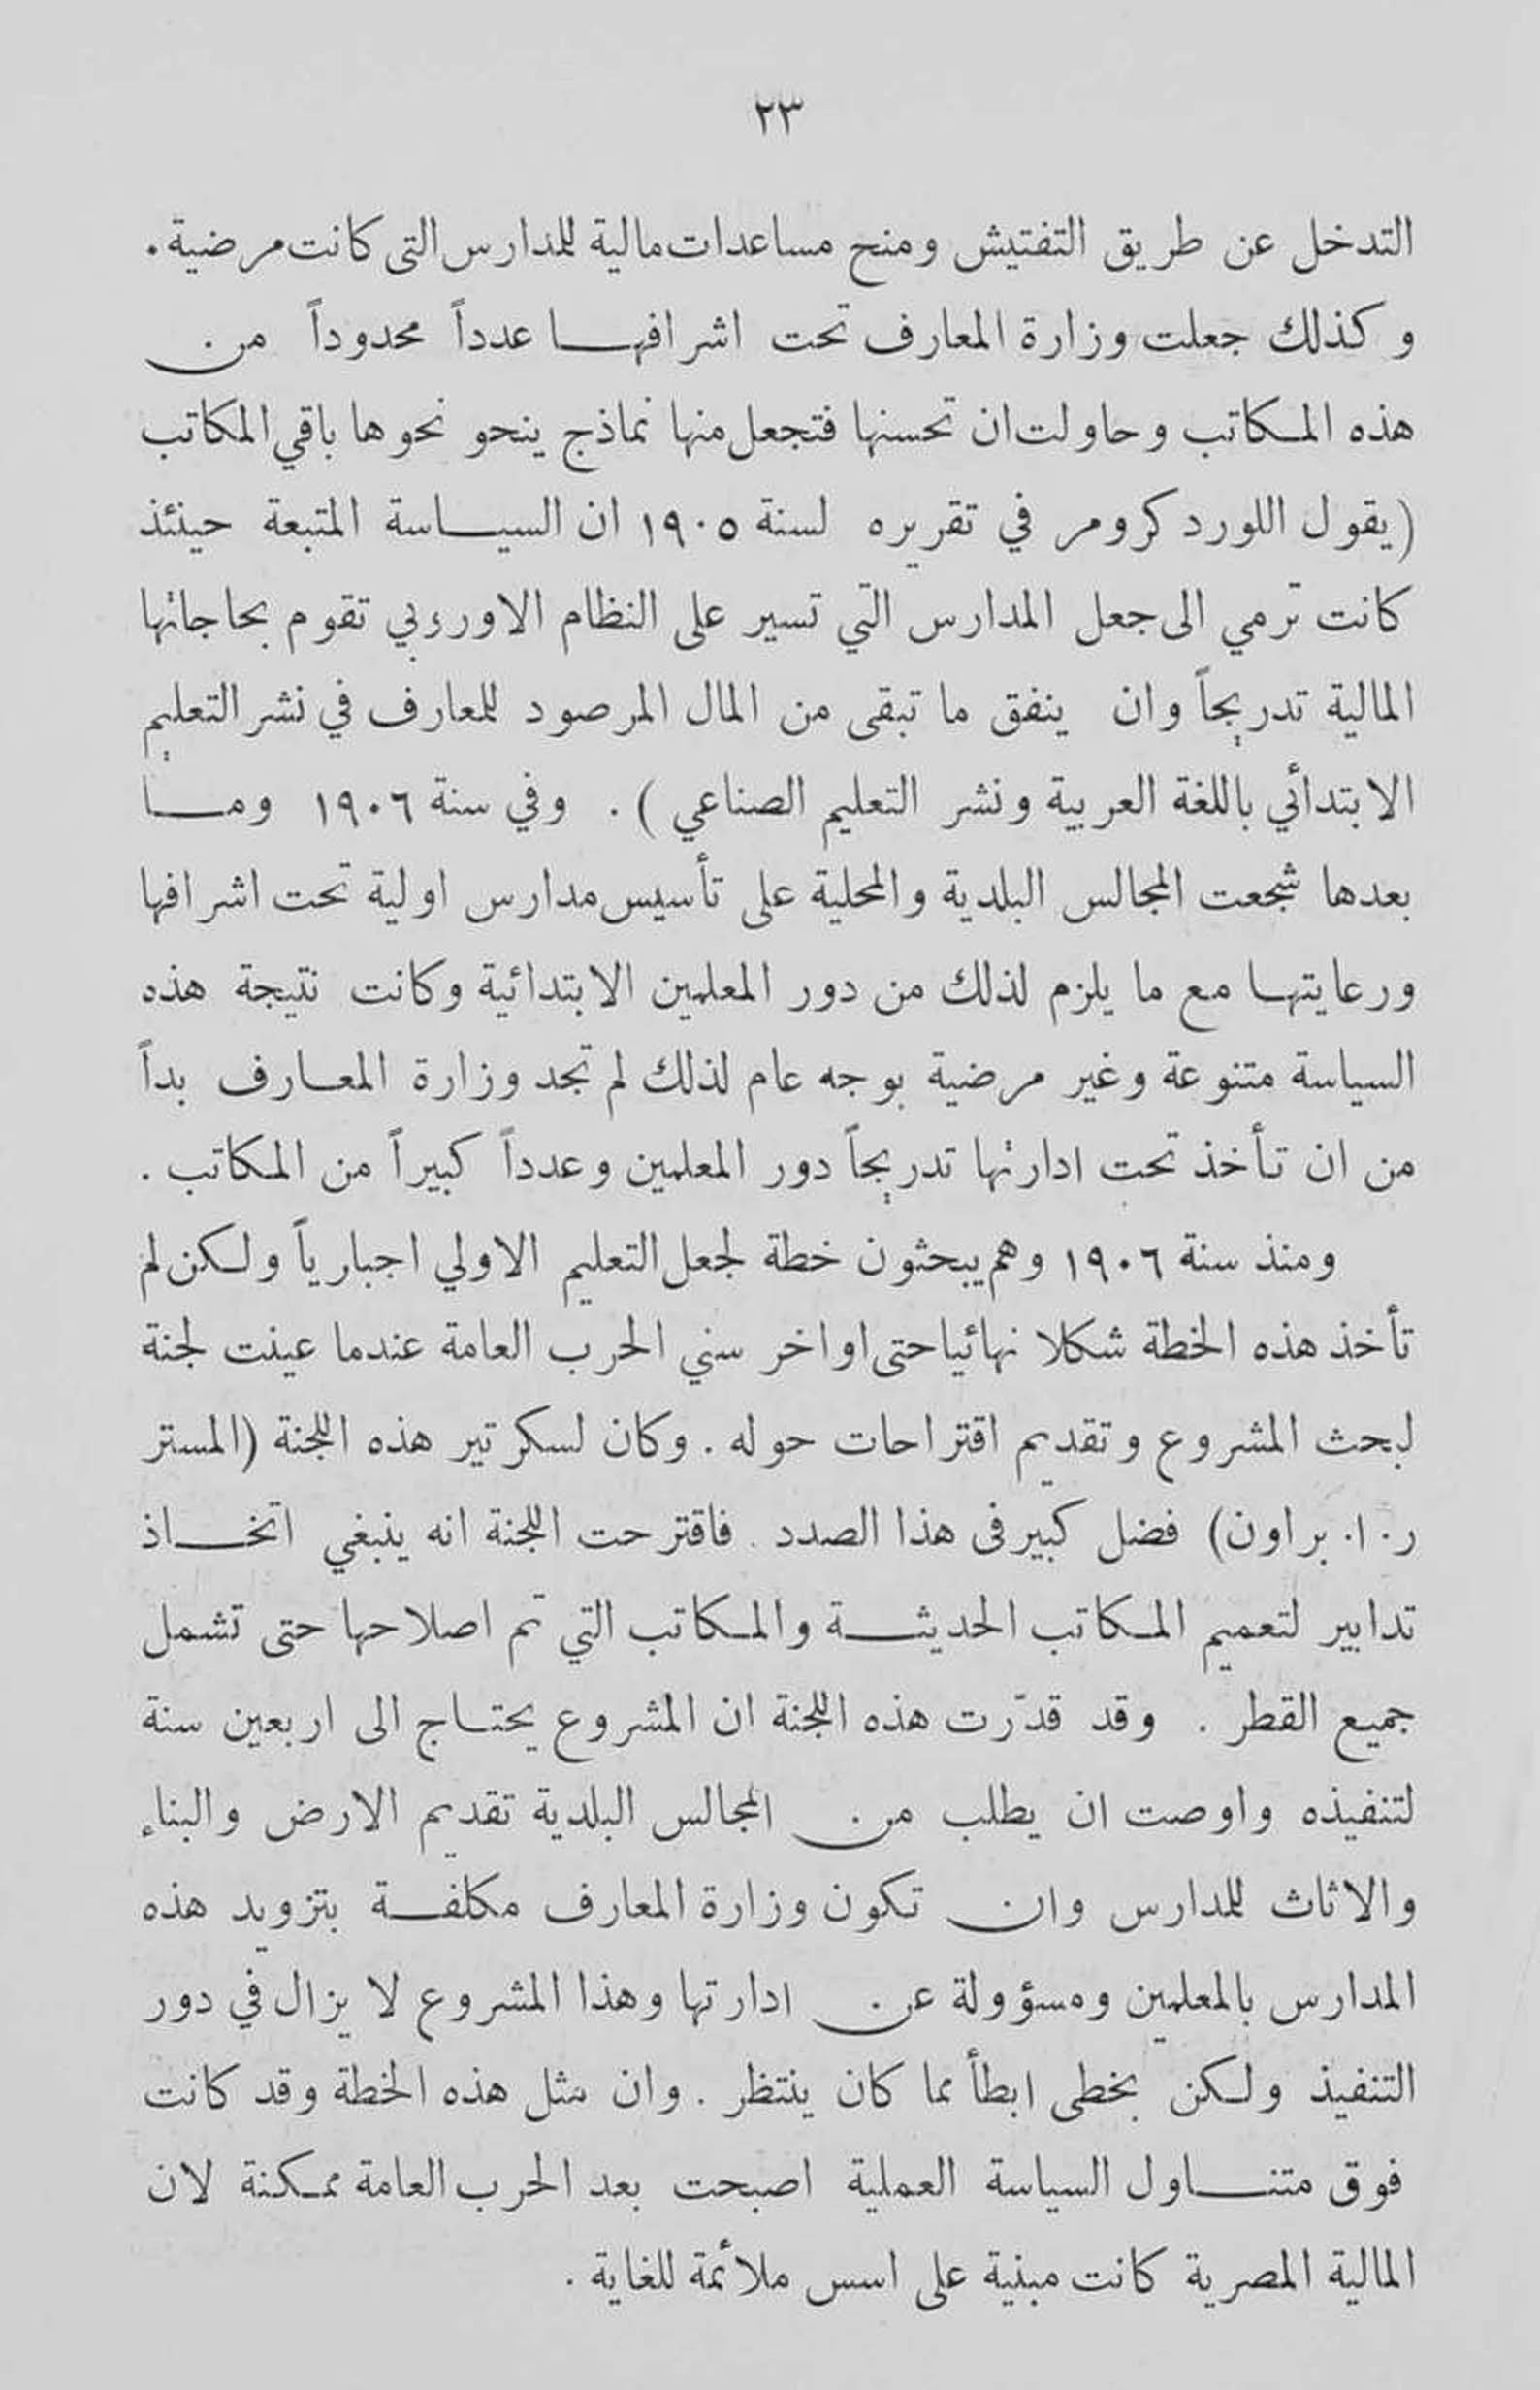 ٢٣
التدخل عن طريق التفتيش ومنح مساعدات مالية للمدارس التى كانت مرضية.
وكذلك جعلت وزارة المعارف تحت اشرافها عدداً محدوداً من
هذه المكاتب وحاولت ان تحسنها فتجعل منها نماذج ينحو نحوها باقي المكاتب
(يقول اللورد كرومر في تقريره لسنة ١٩٠٥ ان السياسة المتبعة حينئذ
كانت ترمي الى جعل المدارس التي تسير على النظام الاوروبي تقوم بحاجاتها
المالية تدريجاً وان ينفق ما تبقى من المال المرصود للمعارف في نشر التعليم
الابتدائي باللغة العربية ونشر التعليم الصناعي ) . وفي سنة ١٩٠٦ وما
بعدها شجعت المجالس البلدية والمحلية على تأسيس مدارس اولية تحت اشرافها
ورعايتها مع ما يلزم لذلك من دور المعلمين الابتدائية وكانت نتيجة هذه
السياسة متنوعة وغير مرضية بوجه عام لذلك لم تجد وزارة المعارف بداً
من ان تأخذ تحت ادارتها تدريجاً دور المعلمين وعدداً كبيراً من المكاتب .
ومنذ سنة ١٩٠٦ وهم يبحثون خطة لجعل التعليم الاولي اجبارياً ولكن لم
تأخذ هذه الخطة شكلا نهائيا حتى اواخر سني الحرب العامة عندما عينت لجنة
لبحث المشروع وتقديم اقتراحات حوله . وكان لسكرتير هذه اللجنة (المستر
ر. ا. براون) فضل كبير فى هذا الصدد . فاقترحت اللجنة انه ينبغي اتخاذ
تدابير لتعميم المكاتب الحديثة والمكاتب التي تم اصلاحها حتى تشمل
جميع القطر . وقد قدّرت هذه اللجنة ان المشروع يحتاج الى اربعين سنة
لتنفيذه واوصت ان يطلب من المجالس البلدية تقديم الارض والبناء
والاثاث للمدارس وان تكون وزارة المعارف مكلفة بتزويد هذه
المدارس بالمعلمين ومسؤولة عن ادارتها وهذا المشروع لا يزال في دور
التنفيذ ولكن بخطى ابطأ مما كان ينتظر . وان مثل هذه الخطة وقد كانت
فوق متناول السياسة العملية اصبحت بعد الحرب العامة ممكنة لان
المالية المصرية كانت مبنية على اسس ملائمة للغاية .